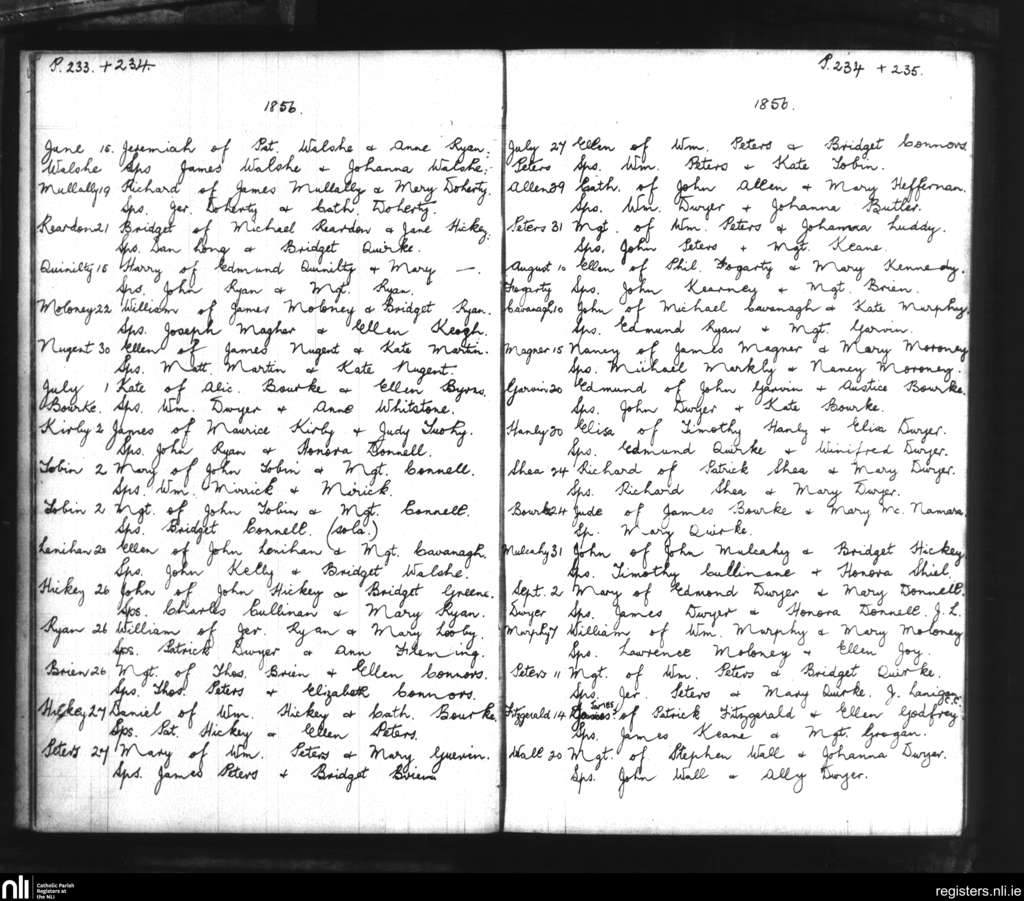 P. 233. + 234.
1856.
June 15. Jeremiah of Pat. Walshe & Anne Ryan.
Walshe Sps James Walshe & Johanna Walshe.
Mullally 19 Richard of James Mullally & Mary Doherty.
Sps. Jer. Doherty & Cath. Doherty.
Reardon 21 Bridget of Michael Reardon & Jane Hickey.
Sps. Dan Long & Bridget Quirke.
Quinilty 15 Harry of Edmund Quinilty & Mary —.
Sps. John Ryan & Mgt. Ryan.
Moloney 22 William of James Moloney & Bridget Ryan.
Sps. Joseph Maghar & Ellen Keogh.
Nugent 30 Ellen of James Nugent & Kate Martin.
Sps. Matt. Martin & Kate Nugent.
July 1 Kate of Alic. Bourke & Ellen Byrns.
Bourke. Sps. Wm. Dwyer & Anne Whitstone.
Kirby 2 James of Maurice Kirby & Judy Tuohy.
Sps. John Ryan & Honora Donnell.
Tobin 2 Mary of John Tobin & Mgt. Connell.
Sps. Wm. Mirrick & Mirick.
Tobin 2 Mgt. of John Tobin & Mgt. Connell.
Sps. Bridget Connell. (sola.)
Lenihan 20 Ellen of John Lenihan & Mgt. Cavanagh.
Sps. John Kelly & Bridget Walshe.
Hickey 26 John of John Hickey & Bridget Greene.
Sps. Charles Cullinan & Mary Ryan.
Ryan 26 William of Jer. Ryan & Mary Looby.
Sps. Patrick Dwyer & Ann Fleming.
Brien 26 Mgt. of Thos. Brien & Ellen Connors.
Sps. Thos. Peters & Elizabeth Connors.
Hickey 27 Daniel of Wm. Hickey & Cath. Bourke.
Sps. Pat. Hickey & Ellen Peters.
Peters 27 Mary of Wm. Peters & Mary Guerin.
Sps. James Peters & Bridget Brien
P. 234 + 235.
1856.
July 27 Ellen of Wm. Peters & Bridget Connors
Peters Sps. Wm. Peters & Kate Tobin.
Allen 29 Cath. of John Allen & Mary Heffernan.
Sps. Wm. Dwyer + Johanna Butler.
Peters 31 Mgt. of Wm. Peters & Johanna Luddy.
Sps. John Peters + Mgt. Keane.
August 10 Ellen of Phil. Fogarty & Mary Kennedy.
Fogarty Sps. John Kearney & Mgt. Brien.
Cavanagh 10 John of Michael Cavanagh & Kate Murphy.
Sps. Edmund Ryan & Mgt. Garvin.
Magner 15 Nancy of James Magner & Mary Moroney
Sps. Michael Markly & Nancy Moroney.
Garvin 20 Edmund of John Garvin & Austice Bourke.
Sps. John Dwyer & Kate Bourke.
Hanly 30 Elisa of Timothy Hanly & Eliza Dwyer.
Sps. Edmund Quirke & Winifred Dwyer.
Shea 24 Richard of Patrick Shea & Mary Dwyer.
Sps. Richard Shea & Mary Dwyer.
Bourke 24 Jude of James Bourke & Mary Mc. Namara.
Sp. Mary Quirke.
Mulcahy 31 John of John Mulcahy & Bridget Hickey
Sps. Timothy Cullinane + Honora Shiel.
Sept. 2 Mary of Edmond Dwyer & Mary Donnell.
Dwyer Sps. James Dwyer & Honora Donnell. J. L.
Murphy 7 William of Wm. Murphy & Mary Moloney
Sps. Lawrence Moloney & Ellen Joy.
Peters 11 Mgt. of Wm. Peters & Bridget Quirke.
Sps. Jer. Peters & Mary Quirke. J. Lanigan C.C.
Fitzgerald 14 James of Patrick Fitzgerald & Ellen Godfrey
Sps. James Keane & Mgt. Grogan.
Wall 20 Mgt. of Stephen Wall & Johanna Dwyer.
Sps. John Wall & Ally Dwyer.
nli Catholic Parish
Registers at
the NLI
registers.nli.ie